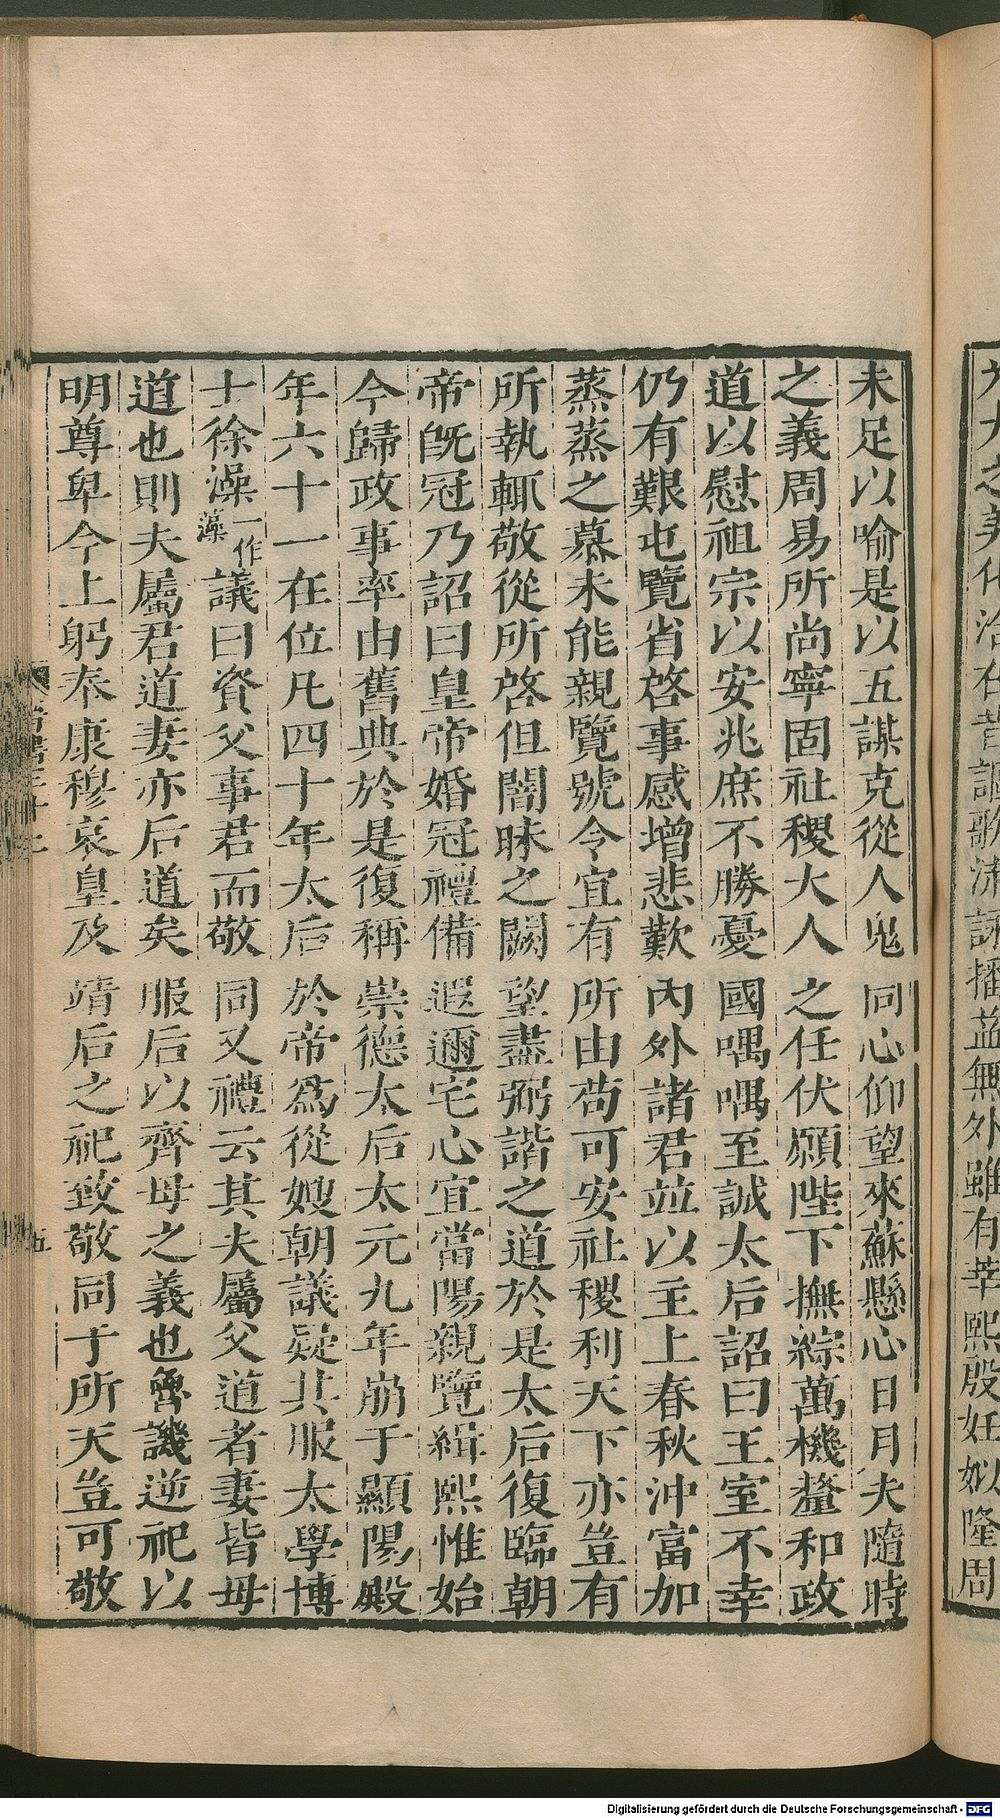 大之美化洽在昔謳歌流詠播益無外雖有莘熙殷妊姒隆周
未足以喻是以五謀克從人鬼同心仰望來蘇懸心日月夫隨時
之義周易所尚寧固社稷大人之任伏願陛下撫綜萬機釐和政
道以慰祖宗以安兆庶不勝憂國喁喁至誠太后詔曰王室不幸
仍有艱屯覽省啓事感增悲歎內外諸君並以主上春秋沖富加
蒸蒸之慕未能親覽號令宜有所由苟可安社稷利天下亦豈有
所執輒敬從所啓但闇昧之闕望盡弼諧之道於是太后復臨朝
帝旣冠乃詔曰皇帝婚冠禮備遐邇宅心宜當陽親覽緝熙惟始
今歸政事率由舊典於是復稱崇德太后太元九年崩于顯陽殿
年六十一在位凡四十年太后於帝爲從嫂朝議疑其服太學博
士徐澡一作藻議曰資父事君而敬同又禮云其夫屬父道者妻皆母
道也則夫屬君道妻亦后道矣服后以齊母之義也魯譏逆祀以
明尊卑今上躬奉康穆哀皇及靖后之祀致敬同于所天豈可敬
五
Digitalisierung gefördert durch die Deutsche Forschungsgemeinschaft - DFG